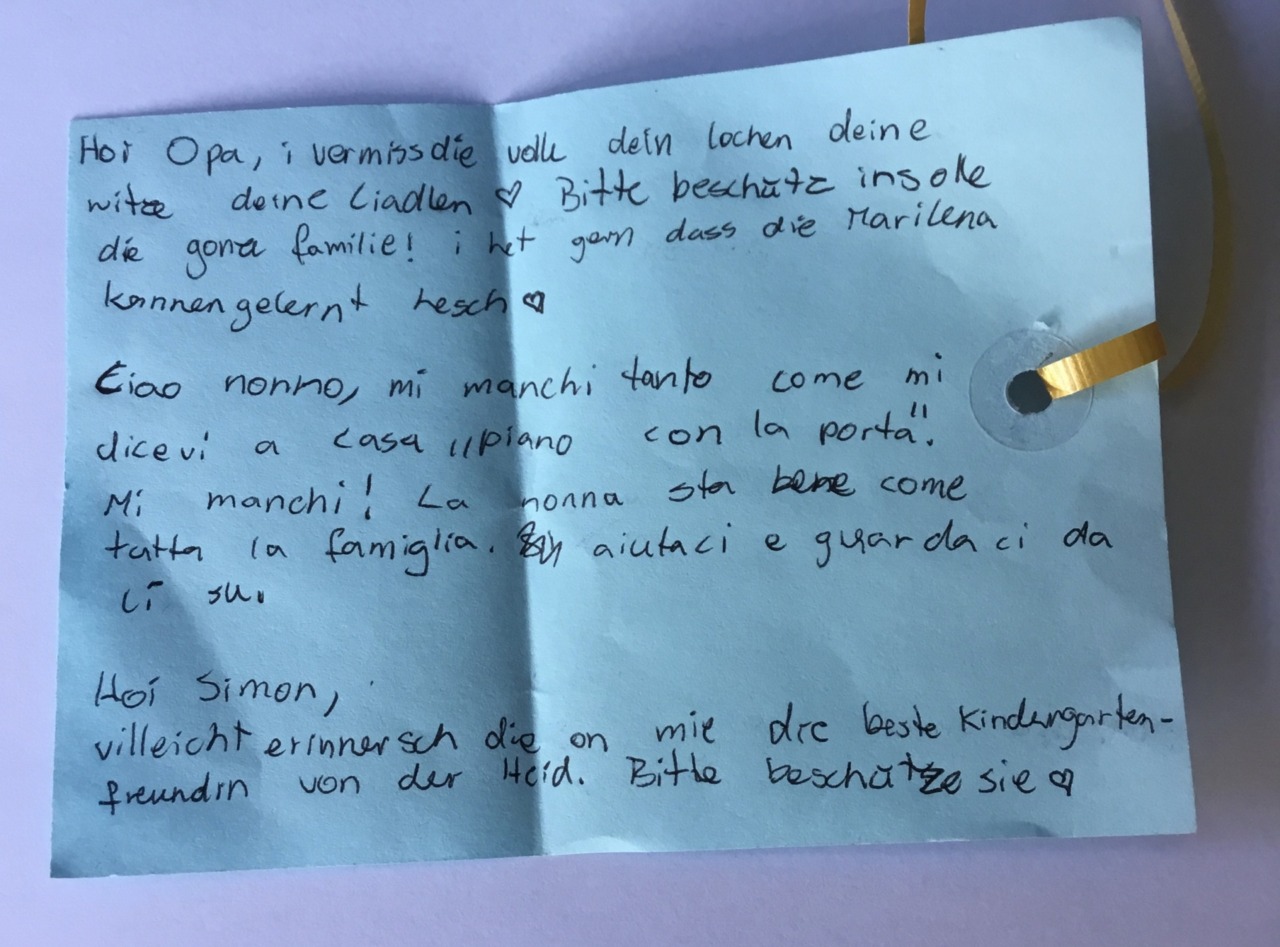 Hoi Opa, i vermiss die volle dein lochen deine
witze deine Liadlen ♡ Bitte beschütz ins olle
die gonza familie! i het gern dass die Marilena
kannengelernt hesch ♡
Ciao nonno, mi manchi tanto come mi
dicevi a casa "piano con la porta".
Mi manchi! La nonna sta bene come
tutta la famiglia. aiutaci e guardaci da
lí su.
Hoi Simon,
villeicht erinnersch die on mie die beste Kindergarten-
freundin von der Heid. Bitte beschütze sie ♡